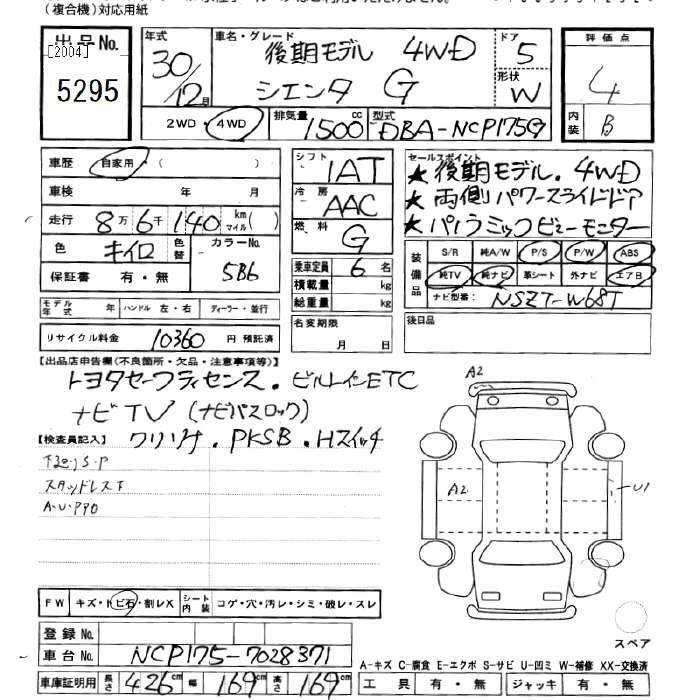 (複合機)対応用紙
出品No.
[2004]
5295
年式 30/12月
車名・グレード 後期モデル 4WD
シエンタ G
ドア 5
形状 W
評価点 4
内装 B
2WD・4WD
排気量 1500 cc
型式 DBA-NCP175G
車歴 自家用・( )
車検 年 月
走行 8万6千140 km マイル( )
色 キイロ 色替 カラーNo. 5B6
保証書 有・無
シフト 1AT
冷房 AAC
燃料 G
乗車定員 6名
積載量 kg
総重量 kg
セールスポイント
★後期モデル。4WD
★両側パワースライドドア
★パノラミックビューモニター
装備品 S/R 純A/W P/S P/W ABS
純TV 純ナビ 革シート 外ナビ エアB
ナビ型番: NSZT-W68T
モデル年式 年 ハンドル 左・右 ディーラー・並行
名変期限 月 日
後日品
リサイクル料金 10360 円 預託済
【出品店申告欄(不良箇所・欠品・注意事項等)】
トヨタセーフティセンス。ビルトインETC
ナビTV(ナビバスロック)
【検査員記入】 ワリソナ。PKSB。Hスイッチ
スタッドレス
A2
A2
U1
FW キズ・トビ石・割レX シート内装 コゲ・穴・汚レ・シミ・破レ・スレ
登録No.
車台No. NCP175-7028371
スペア
A-キズ C-腐食 E-エクボ S-サビ U-凹ミ W-補修 XX-交換済
車庫証明用 長さ 426cm 幅 169cm 高さ 169cm
工具 有・無 ジャッキ 有・無